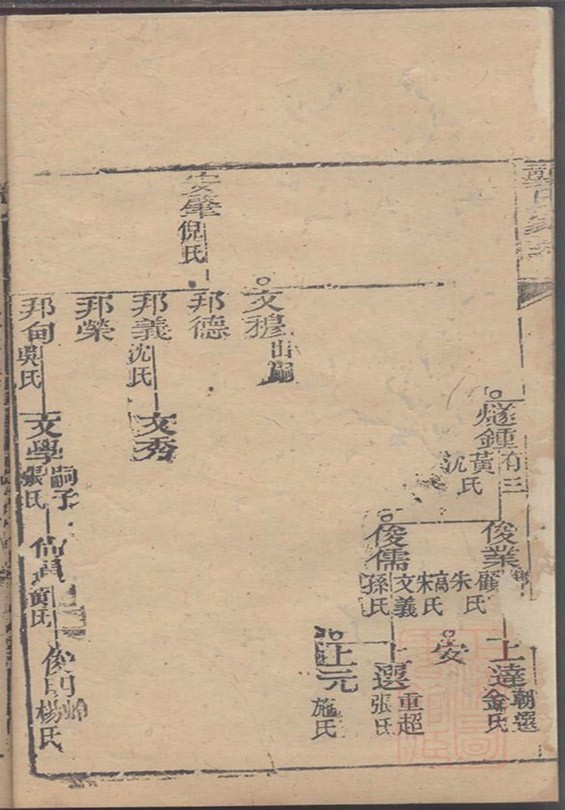 燧鍾
有三
黃氏
沈
俊業
顧氏
朱
俊儒
高氏
宋
文義
孫氏
士達
朝選
金氏
安
士選
重超
張氏
正元
施氏
安肇
倪氏
文穆
出嗣
邦德
邦義
沈氏
文秀
邦榮
邦甸
吳氏
文學
嗣子
張氏
黃氏
俊明
楊氏